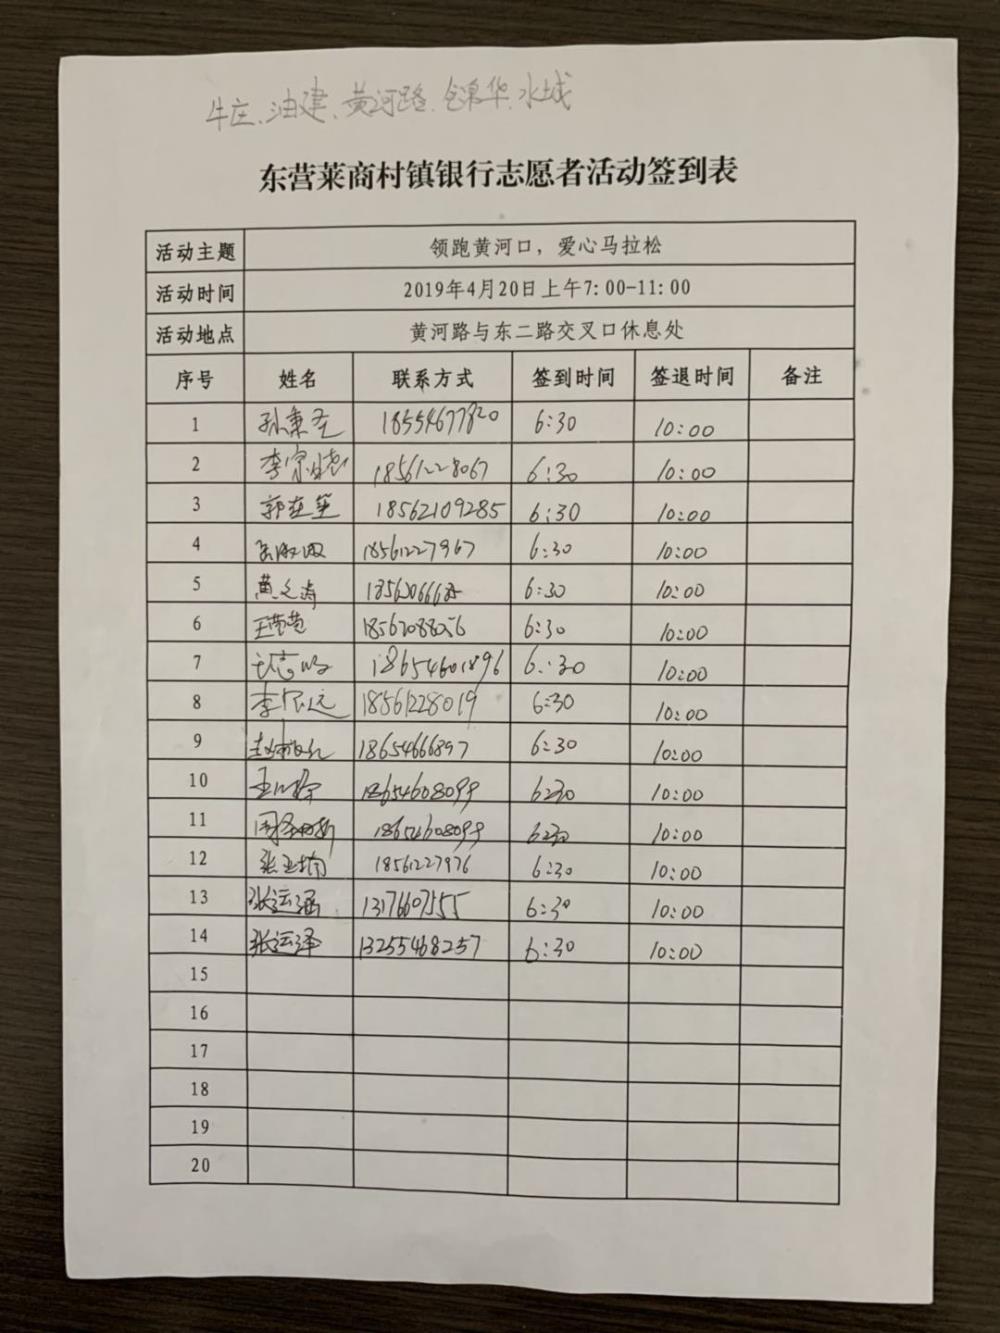 牛庄、油建、黄河路、 水城
东营莱商村镇银行志愿者活动签到表
活动主题 领跑黄河口，爱心马拉松
活动时间 2019年4月20日上午7:00-11:00
活动地点 黄河路与东二路交叉口休息处
序号 姓名 联系方式 签到时间 签退时间 备注
1 孙秉圣 18554677820 6:30 10:00
2 李宗晓 18561228067 6:30 10:00
3 郭在笙 18562109285 6:30 10:00
4 18561227967 6:30 10:00
5 黄文涛 6:30 10:00
6 王莹莹 18562088056 6:30 10:00
7 18654601896 6:30 10:00
8 李 远 18561228019 6:30 10:00
9 赵 18654666897 6:30 10:00
10 王 18654608099 6:30 10:00
11 周 18654608099 6:30 10:00
12 张 18561227976 6:30 10:00
13 张运涵 13176607555 6:30 10:00
14 张运泽 13255468257 6:30 10:00
15
16
17
18
19
20